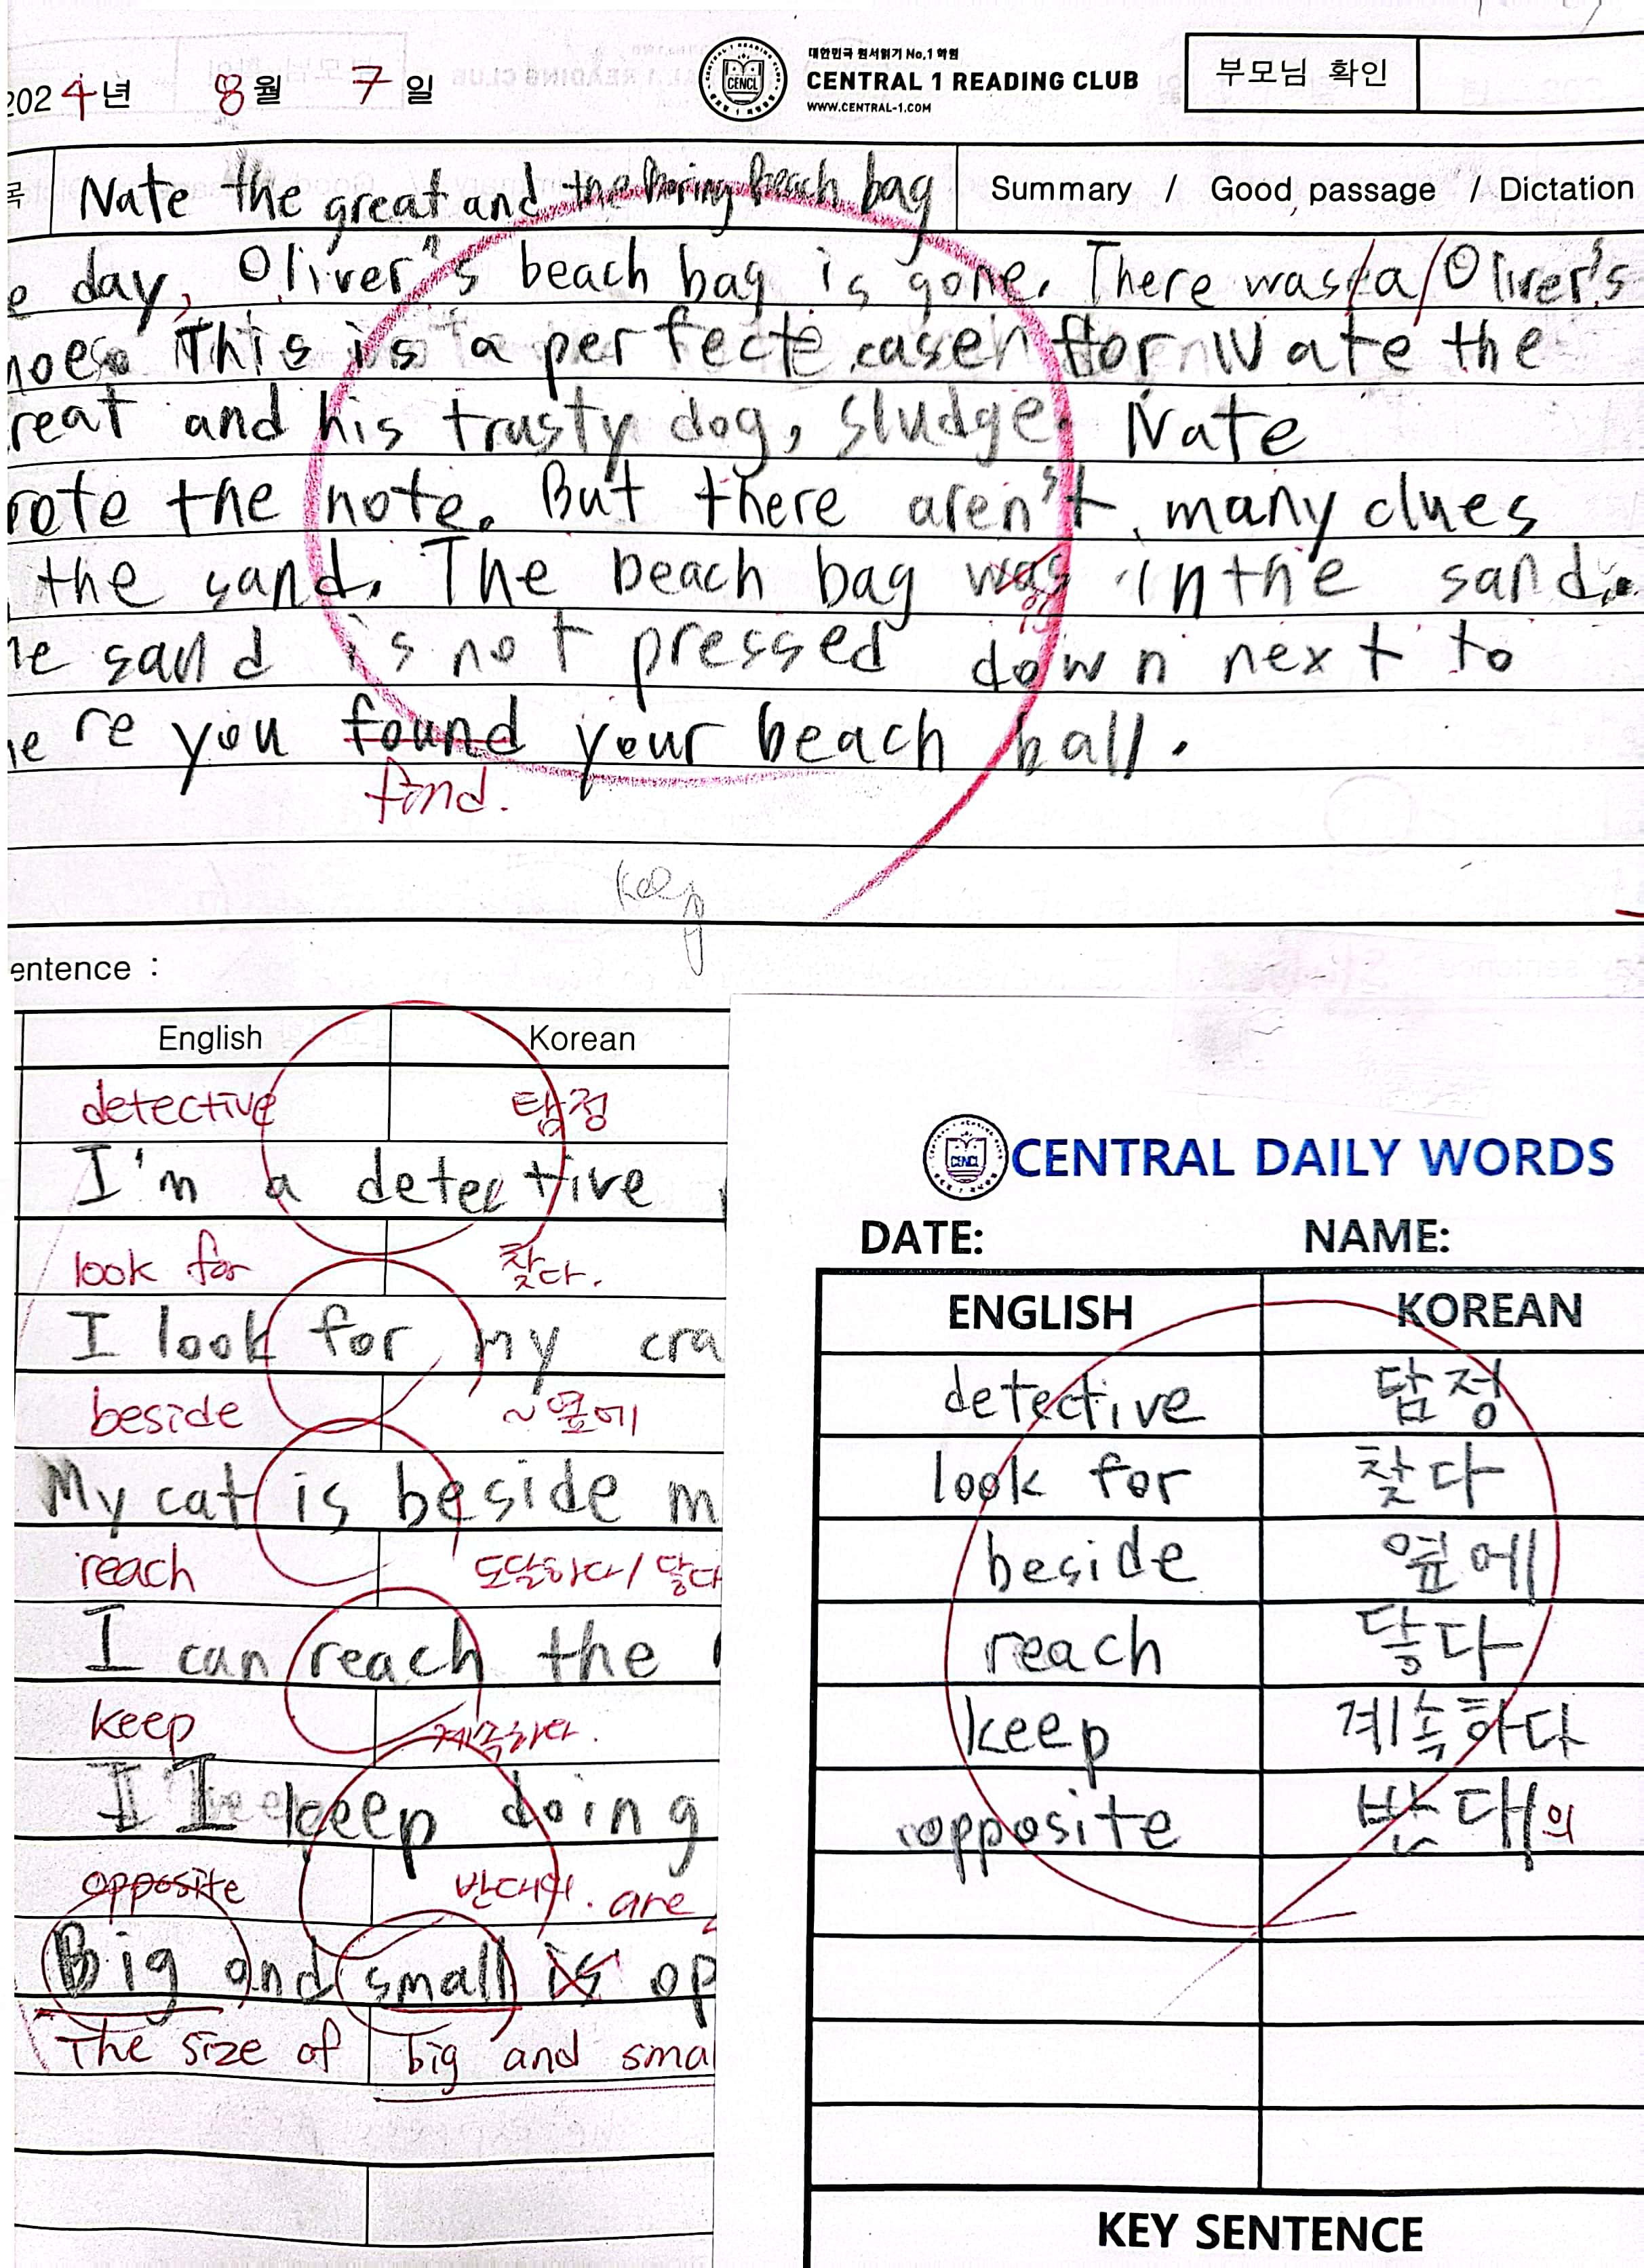 2024년 8월 7일
CENCL
대한민국 원서읽기 No.1 학원
CENTRAL 1 READING CLUB
WWW.CENTRAL-1.COM
부모님 확인
목 Nate the great and the beach bag
Summary / Good passage / Dictation
e day, Oliver's beach bag is gone. There was a Oliver's
hoes. This is a perfecte case for Nate the
reat and his trusty dog, sludge. Nate
rote the note. But there aren't many clues
the sand. The beach bag was in the sand.
is
he sand is not pressed down next to
here you found your beach ball.
find.
entence :
English Korean
detective 탐정
I'm a detective
look for 찾다.
I look for my cra
beside ~옆에
My cat is beside m
reach 도달하다/닿다
I can reach the
keep 계속하다.
I I keep doing
opposite 반대의. are
Big and small is op
The size of big and sma
CENCL
CENTRAL DAILY WORDS
DATE: NAME:
ENGLISH KOREAN
detective 탐정
look for 찾다
beside 옆에
reach 닿다
keep 계속하다
opposite 반대의
KEY SENTENCE